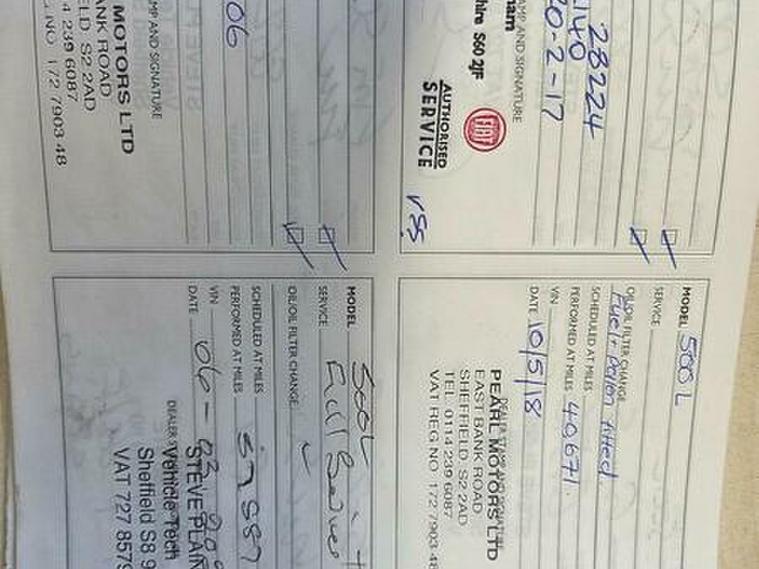 28224
140
20-2-17
AMP AND SIGNATURE
ham
hire S60 2JF
FIAT
AUTHORISED
SERVICE
MODEL 500L
SERVICE
OIL/OIL FILTER CHANGE
SCHEDULED AT MILES
PERFORMED AT MILES 40,671
VIN
DATE 10/5/18
PEARL MOTORS LTD
EAST BANK ROAD
SHEFFIELD S2 2AD
TEL: 0114 239 6087
VAT REG NO 172 7903 48
06
MP AND SIGNATURE
MOTORS LTD
ANK ROAD
ELD S2 2AD
4 239 6087
NO 172 7903 48
MODEL 500L
SERVICE Full
OIL/OIL FILTER CHANGE
SCHEDULED AT MILES
PERFORMED AT MILES
VIN
DATE 06-
DEALER
STEVE PLAIN
Vehicle Tech
Sheffield S8 9
VAT 727 8579